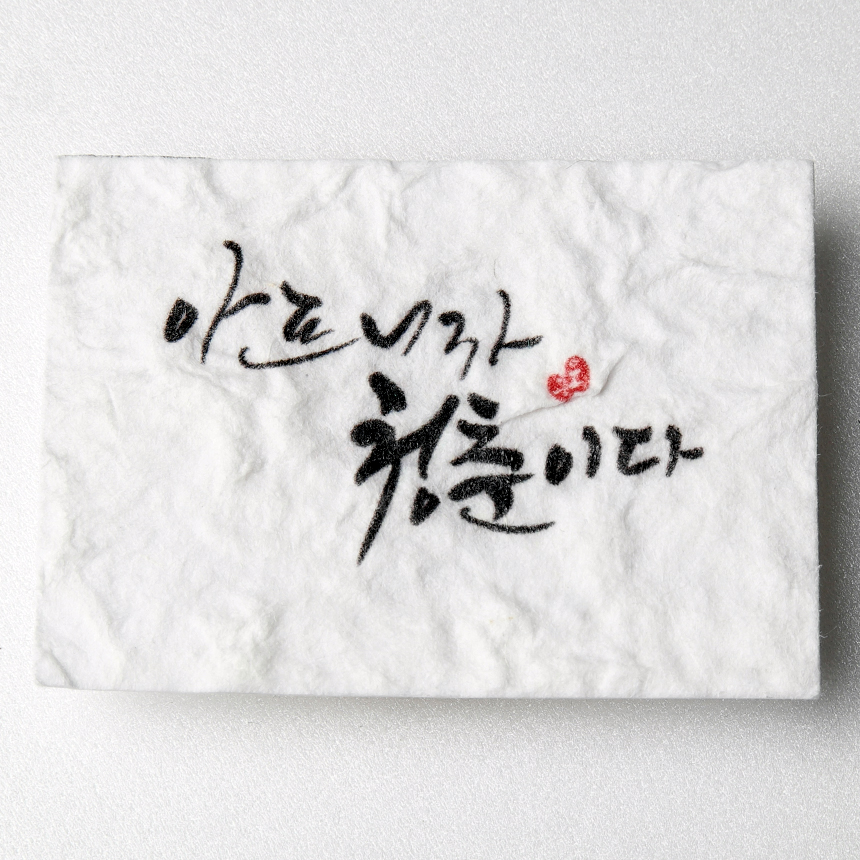 아프니까
청춘이다